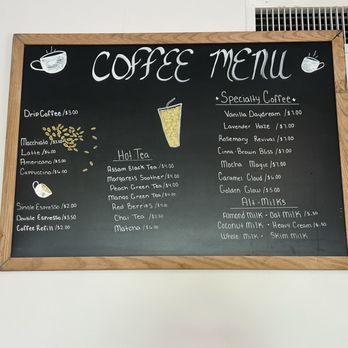 COFFEE MENU
Drip Coffee / $3.00
Macchiato /
Latte / $4.00
Americano / $3.00
Cappuccino /
Single Espresso / $2.00
Double Espresso / $3.50
Coffee Refill / $2.00
Hot Tea
Assam Black Tea / $4.00
Margarets Soother / $4.00
Peach Green Tea / $4.00
Mango Green Tea / $4.00
Red Berries /
Chai Tea /
Matcha /
• Specialty Coffee •
Vanilla Daydream / $7.00
Lavender Haze / $7.00
Rosemary Revival / $7.00
Cinna-Brown Bliss / $7.00
Mocha Magic / $7.00
Caramel Cloud /
Golden Glow / $5.00
Alt-Milks
Almond Milk - Oat Milk / $.50
Coconut Milk - Heavy Cream / $.50
Whole Milk - Skim Milk